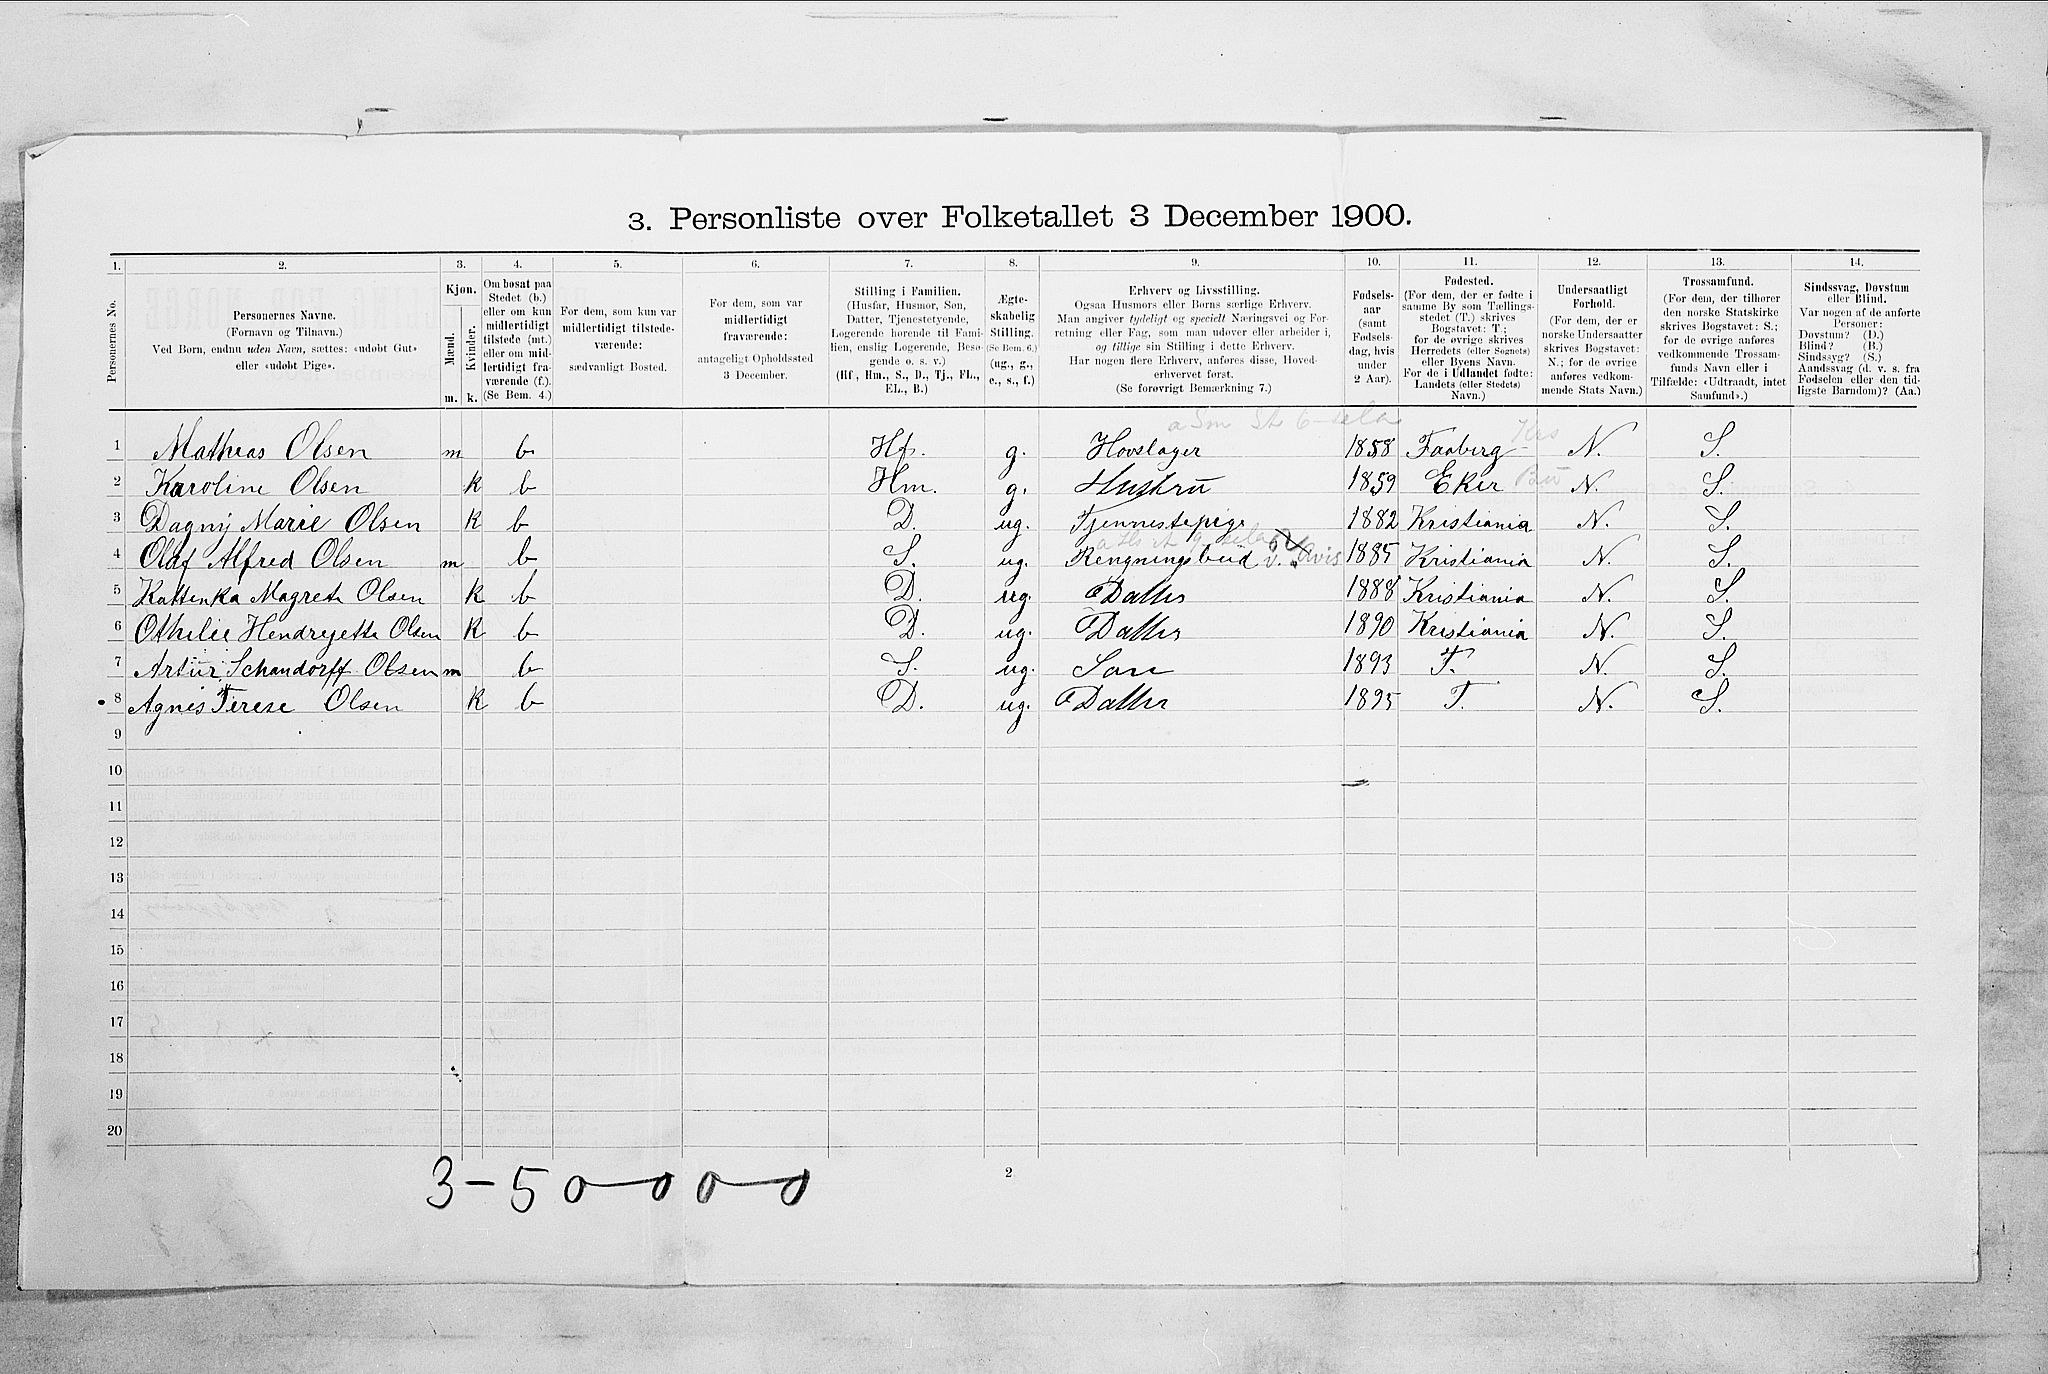 3. Personliste over Folketallet 3 December 1900.
1. 2. 3. 4. 5. 6. 7. 8. 9. 10. 11. 12. 13. 14.
Personernes No.
Personernes Navne.
(Fornavn og Tilnavn.)
Ved Børn, endnu uden Navn, sættes: «udøbt Gut»
eller «udøbt Pige».
Kjøn.
Mænd.
Kvinder.
m. k.
Om bosat paa
Stedet (b.)
eller om kun
midlertidigt
tilstede (mt.)
eller om mid-
lertidigt fra-
værende (f.).
(Se Bem. 4.)
For dem, som kun var
midlertidigt tilstede-
værende:
sædvanligt Bosted.
For dem, som var
midlertidigt
fraværende:
antageligt Opholdssted
3 December.
Stilling i Familien.
(Husfar, Husmor, Søn,
Datter, Tjenestetyende,
Logerende hørende til Fami-
lien, enslig Logerende, Besø-
gende o. s. v.)
(Hf., Hm., S., D., Tj., FL.,
EL., B.)
Ægte-
skabelig
Stilling.
(Se Bem. 6.)
(ug., g.,
e., s., f.)
Erhverv og Livsstilling.
Ogsaa Husmors eller Børns særlige Erhverv.
Man angiver tydeligt og specielt Næringsvei og For-
retning eller Fag, som man udøver eller arbeider i,
og tillige sin Stilling i dette Erhverv.
Har nogen flere Erhverv, anføres disse, Hoved-
erhvervet først.
(Se forøvrigt Bemærkning 7.)
Fødsels-
aar
(samt
Fødsels-
dag, hvis
under
2 Aar).
Fødested.
(For dem, der er fødte i
samme By som Tællings-
stedet (T.) skrives
Bogstavet: T.;
for de øvrige skrives
Herredets (eller Sognets)
eller Byens Navn.
For de i Udlandet fødte:
Landets (eller Stedets)
Navn.)
Undersaatligt
Forhold.
(For dem, der er
norske Undersaatter
skrives Bogstavet:
N.; for de øvrige
anføres vedkom-
mende Stats Navn.)
Trossamfund.
(For dem, der tilhører
den norske Statskirke
skrives Bogstavet: S.;
for de øvrige anføres
vedkommende Trossam-
funds Navn eller i
Tilfælde: «Udtraadt, intet
Samfund».)
Sindssvag, Døvstum
eller Blind.
Var nogen af de anførte
Personer:
Døvstum? (D.)
Blind? (B.)
Sindssyg? (S.)
Aandssvag (d. v. s. fra
Fødselen eller den tid-
ligste Barndom)? (Aa.)
1 Mathias Olsen m b Hf. g. Hovslager 1858 Faaberg N. S.
2 Karoline Olsen k b Hm. g. Hustru 1859 Eker N. S.
3 Dagny Marie Olsen k b D. ug. Tjennestepige 1882 Kristiania N. S.
4 Olaf Alfred Olsen m b S. ug. Rengningsbud v. Avis 1885 Kristiania N. S.
5 Kattenka Magrete Olsen k b D. ug. Datter 1888 Kristiania N. S.
6 Othilie Hendryette Olsen k b D. ug. Datter 1890 Kristiania N. S.
7 Artur Schandorff Olsen m b S. ug. Søn 1893 T. N. S.
8 Agnes Terese Olsen k b D. ug. Datter 1895 T. N. S.
9
10
11
12
13
14
15
16
17
18
19
20
3-5 0 0 0 0
2